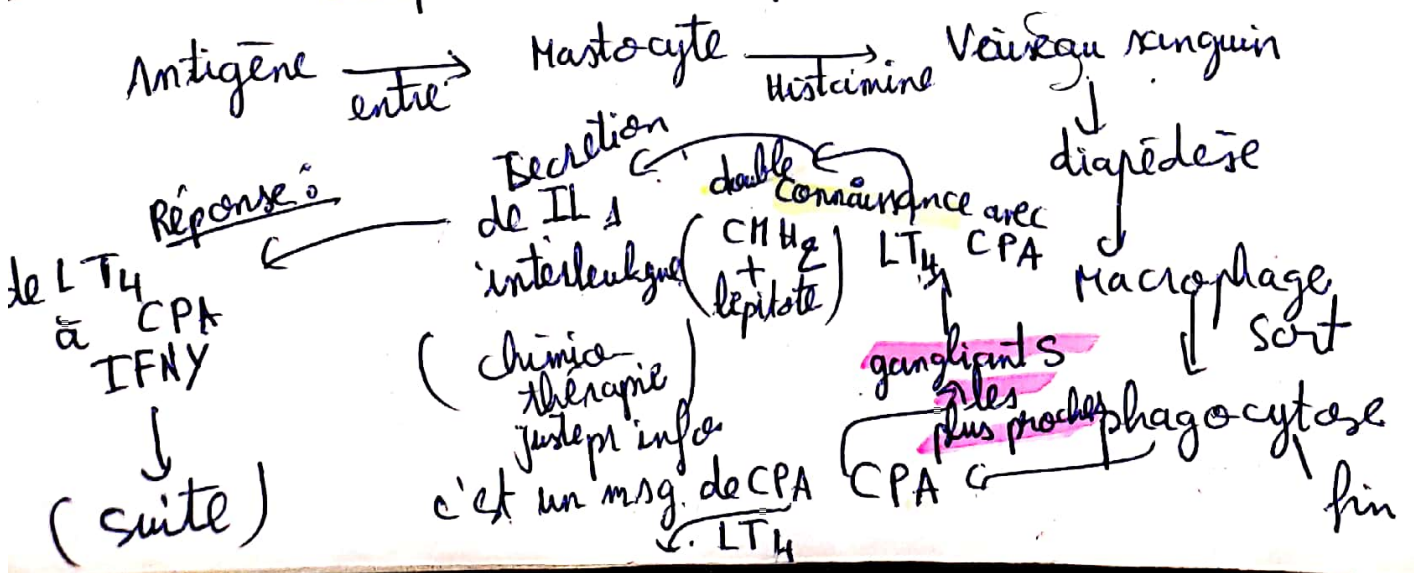 Antigène entré Mastocyte Histamine Vaisseau sanguin
diapédèse
Macrophage
sort
phagocytose
fin
CPA
gangliants
les
plus proches
LT4 CPA
double
connaissance avec
( CMH2
+
l'épitote )
Secretion
de IL1
interleukque
( chimio-
thérapie
juste pr info )
c'est un msg. de CPA
LT4
Réponse :
de LT4
à CPA
IFNγ
(suite)